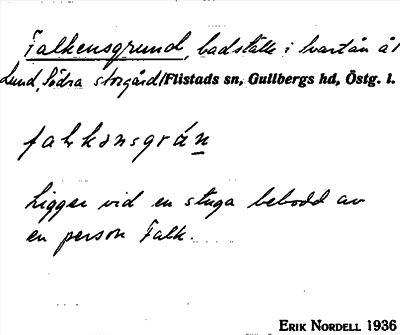 Falkensgrund, badställe i Svartån åt
Lund, Södra storgård/Flistads sn, Gullbergs hd, Östg. l.
falkənsgrán
Ligger vid en stuga bebodd av
en person Falk.
ERIK NORDELL 1936